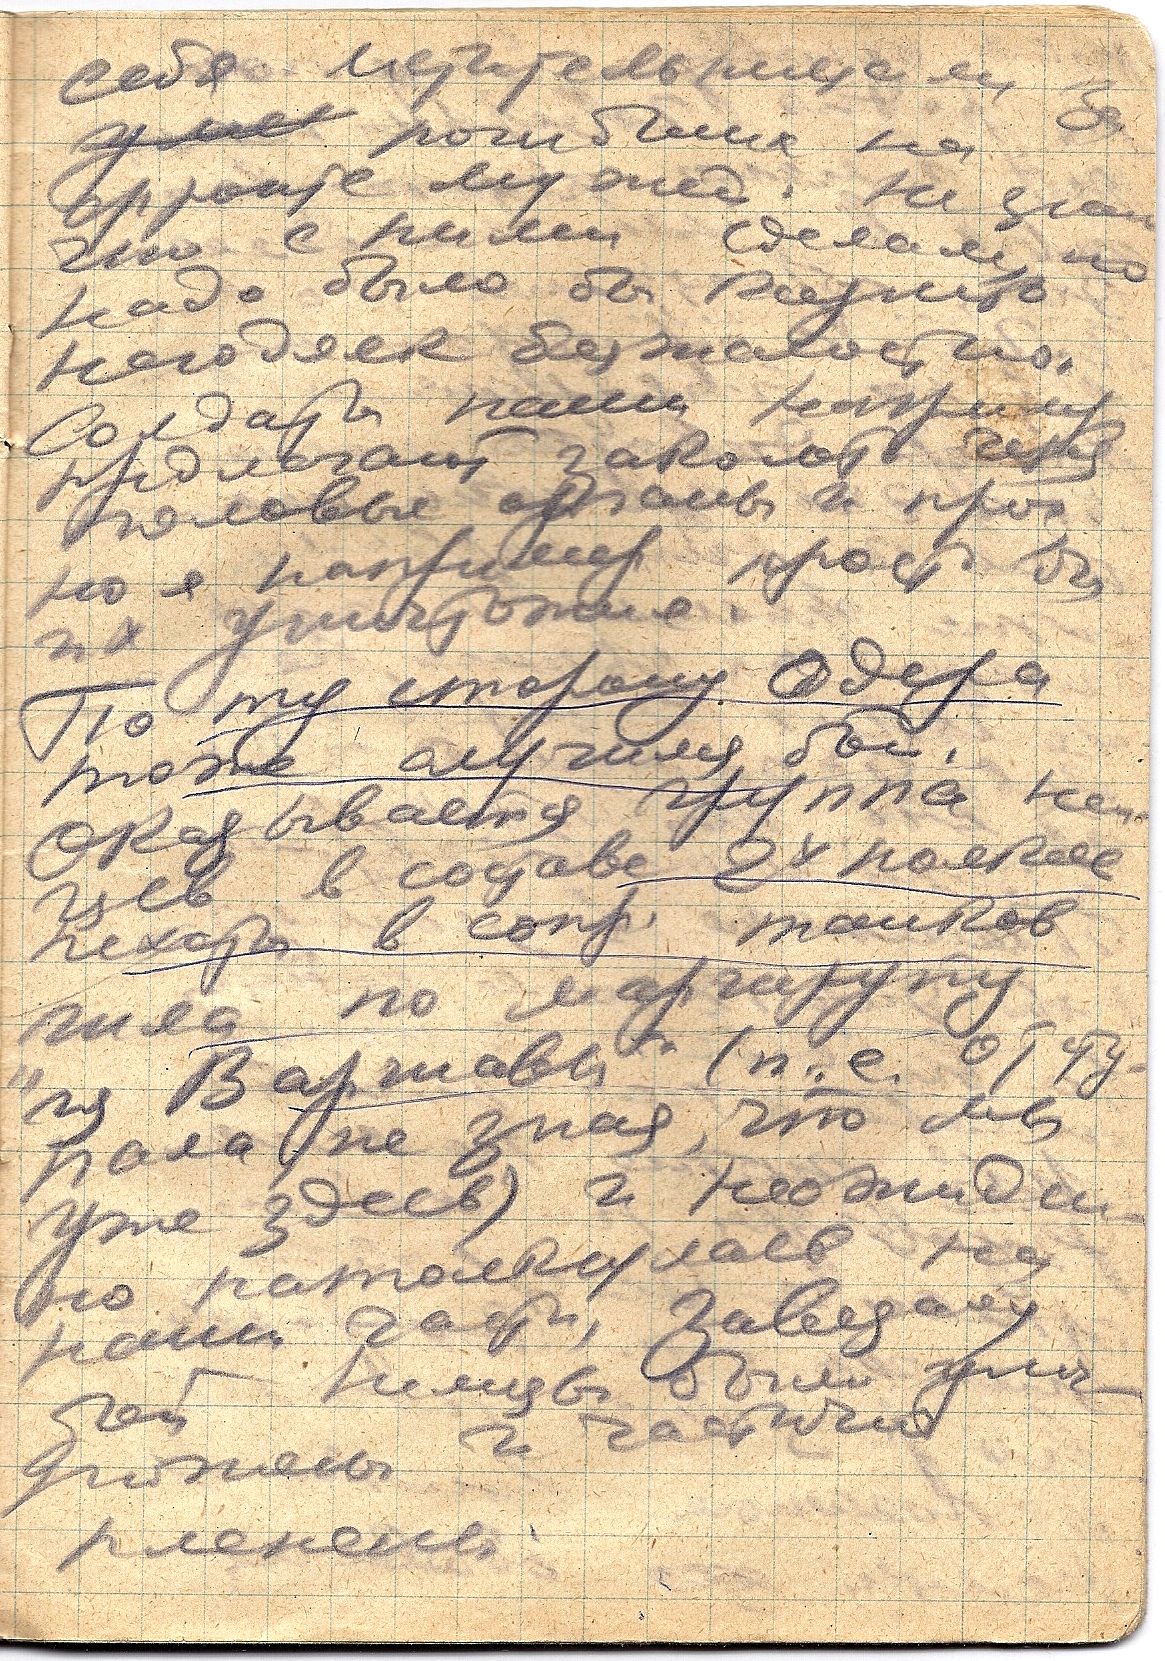 себя мстительницами за
погибших на
фронте мужей. Не знаю
что с ними сделали, но
надо было бы казнить
негодяек безжалостно.
Солдаты наши например
предлагают заколоть через
половые органы и проч.
но я например просто бы
их уничтожил.
По ту сторону Одера
тоже случился бой.
Оказывается группа нем-
цев в составе 2х полков
пехоты в сопр. танков
шла по маршруту
"на Варшаву" (т.е. отсту-
пала не зная, что мы
уже здесь) и неожидан-
но натолкнулась на
наши части, завязался
бой Немцы были унич-
тожены и частично
пленены